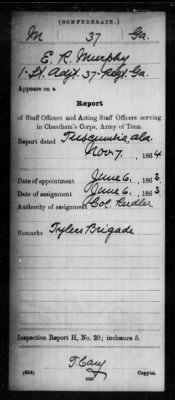 (CONFEDERATE.)
M 37 Ga.
E. R. Murphy
1 Lt. Adjt. 37 Regt Ga.
Appears on a
Report
of Staff Officers and Acting Staff Officers serving
in Cheatham's Corps, Army of Tenn.
Report dated Tuscumbia, Ala.
Nov. 7, 1864
Date of appointment June 6, 1863
Date of assignment June 6, 1863
Authority of assignment Col. Rudler
Remarks Tylers Brigade
Inspection Report H, No. 28; inclosure 5.
T. Cary
(654) Copyist.